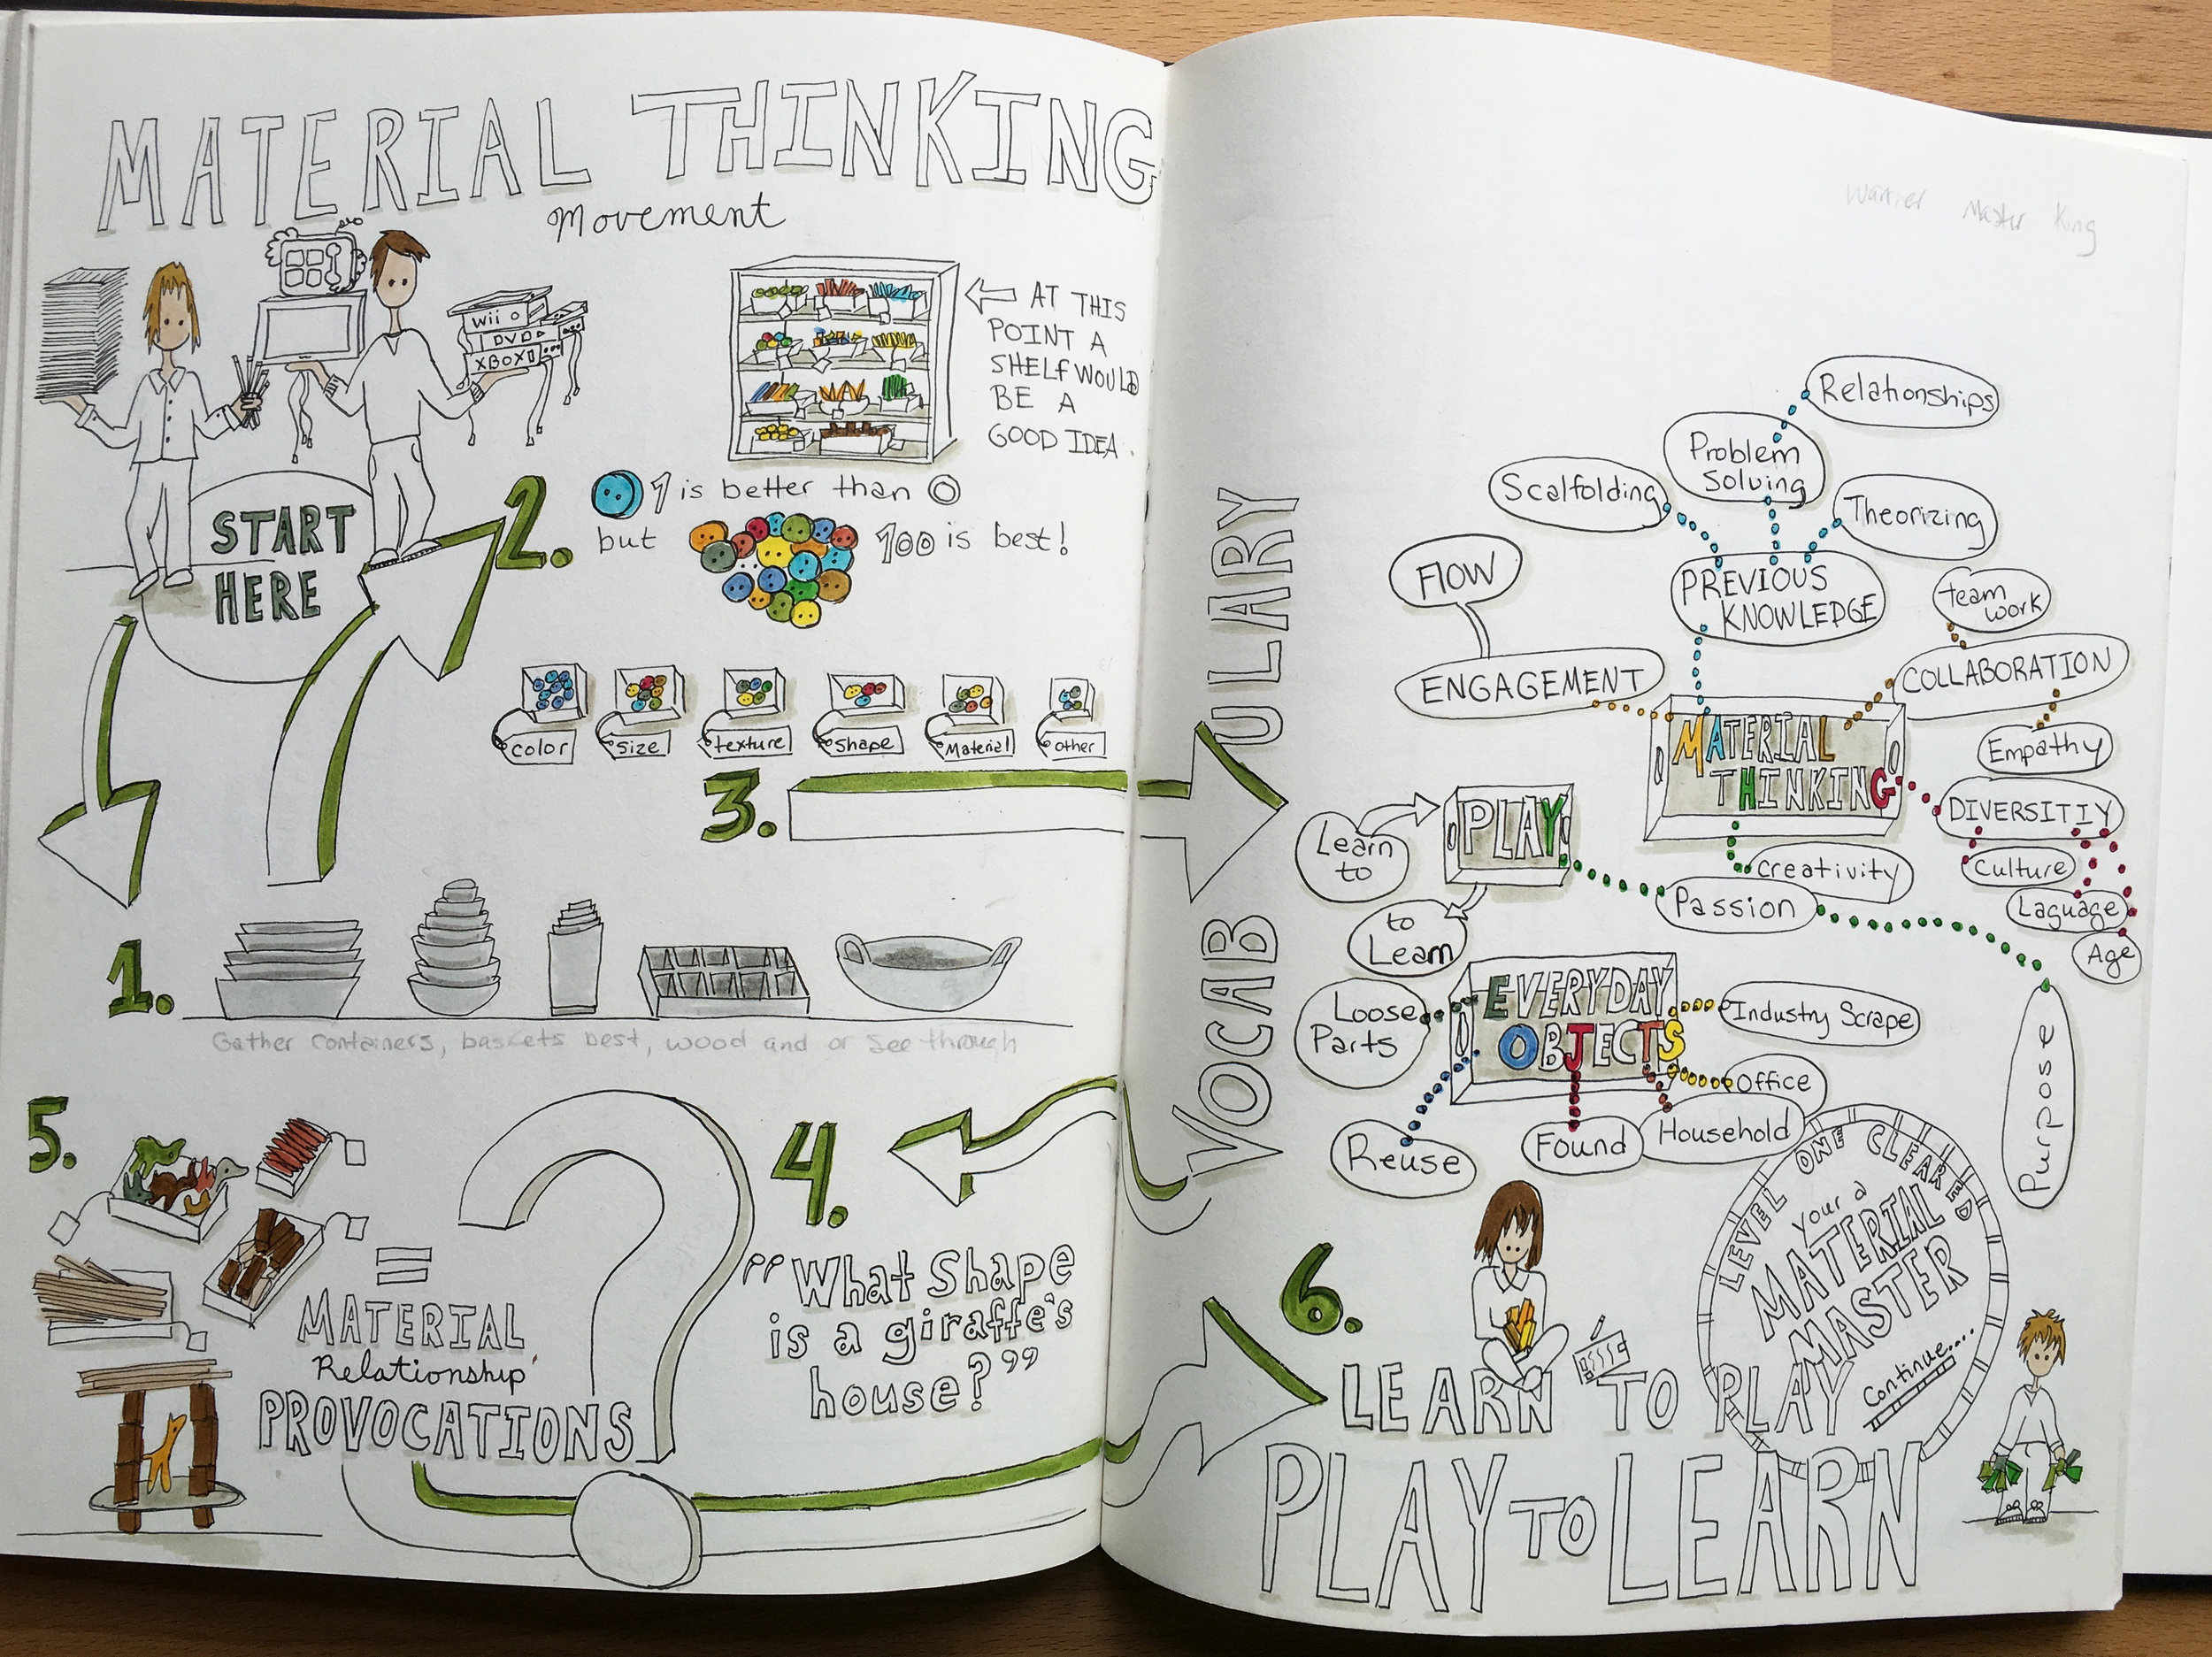 MATERIAL THINKING
Movement
Wii
DVD
XBOX
START
HERE
AT THIS
POINT A
SHELF WOULD
BE A
GOOD IDEA.
2.
1 is better than 0
but 100 is best!
color
size
texture
shape
Material
other
3.
1.
Gather containers, baskets best, wood and or see through
5.
=
MATERIAL
Relationship
PROVOCATIONS
?
4.
"What Shape
is a giraffe's
house?"
Warrier Master King
VOCABULARY
Relationships
Problem
Solving
Scalfolding
Theorizing
FlOW
PREVIOUS
KNOWLEDGE
team
work
ENGAGEMENT
COLLABORATION
MATERIAL
THINKING
Empathy
DIVERSITIY
Learn
to
PLAY
to
Learn
Creativity
Passion
Culture
Laguage
Age
Purpose
EVERYDAY
OBJECTS
Loose
Parts
Industry Scrape
Office
Household
Found
Reuse
LEVEL ONE CLEARED
your a
MATERIAL
MASTER
Continue....
6.
LEARN TO PLAY
PLAY TO LEARN